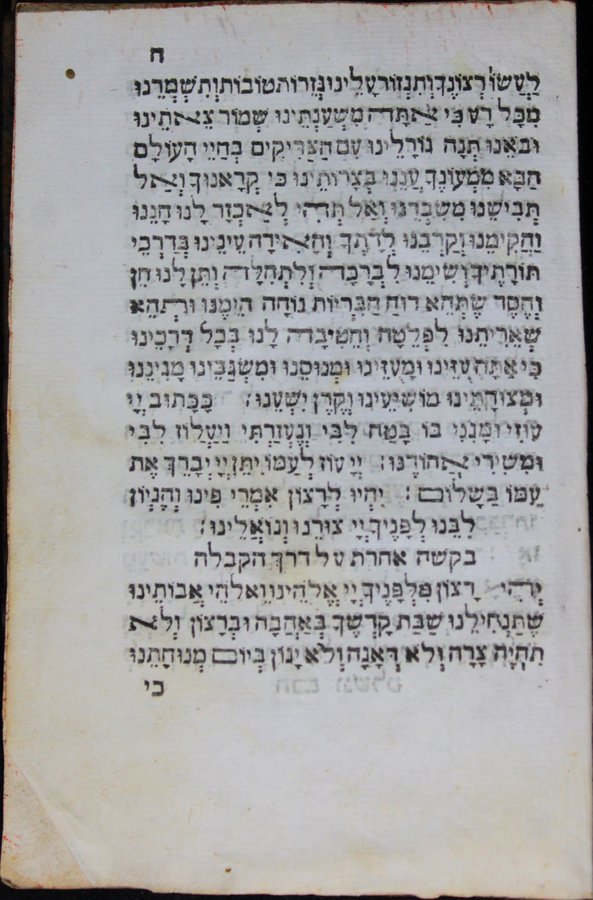 ח
לַעֲשׂוֹ רְצוֹנֶךָ וְתִגְזוֹר עָלֵינוּ גְּזֵרוֹת טוֹבוֹת וְתִשְׁמְרֵנוּ
מִכָּל רָע כִּי אַתָּה מִשְׁעַנְתֵּינוּ שְׁמוֹר צֵאתֵינוּ
וּבֹאֵנוּ תְּנָה גוֹרָלֵינוּ עִם הַצַּדִּיקִים בְּחַיֵּי הָעוֹלָם
הַבָּא מִמְּעוֹנֶךָ עֲנֵנוּ בְּצָרוֹתֵינוּ כִּי קְרָאנוּךָ וְאַל
תְּבִישֵׁנוּ מִשִּׂבְרֵנוּ וְאַל תְּהִי לְאַכְזָר לָנוּ חָנֵּנוּ
וַהֲקִימֵנוּ וְקָרְבֵנוּ לְדָתֶךָ וְהָאִירָה עֵינֵינוּ בְּדַרְכֵי
תּוֹרָתֶיךָ וְשִׂימֵנוּ לִבְרָכָה וְלִתְהִלָּה וְתֵן לָנוּ חֵן
וָחֶסֶד שֶׁתְּהֵא רוּחַ הַבְּרִיּוֹת נוֹחָה הֵימֶנּוּ וּתְהֵא
שְׁאֵרִיתֵנוּ לִפְלֵטָה וְהֵטִיבָה לָנוּ בְּכָל דְּרָכֵינוּ
כִּי אַתָּה עֻזֵּינוּ וּמָעֻזֵּינוּ וּמְנוּסֵנוּ וּמִשְׂגַּבֵּינוּ מָגִינֵּנוּ
וּמְצוּדָתֵינוּ מוֹשִׁיעֵינוּ וְקֶרֶן יִשְׁעֵנוּ׃ כַּכָּתוּב יְיָ
עוּזִּי וּמָגִנִּי בּוֹ בָּטַח לִבִּי וְנֶעֱזָרְתִּי וַיַּעֲלוֹז לִבִּי
וּמִשִּׁירִי אֲהוֹדֶנּוּ׃ יְיָ עוֹז לְעַמּוֹ יִתֵּן יְיָ יְבָרֵךְ אֶת
עַמּוֹ בַשָּׁלוֹם׃ יִהְיוּ לְרָצוֹן אִמְרֵי פִינוּ וְהֶגְיוֹן
לִבֵּנוּ לְפָנֶיךָ יְיָ צוּרֵנוּ וְגוֹאֲלֵינוּ׃
בקשה אחרת על דרך הקבלה
יְהִי רָצוֹן מִלְּפָנֶיךָ יְיָ אֱלֹהֵינוּ וֵאלֹהֵי אֲבוֹתֵינוּ
שֶׁתַּנְחִילֵנוּ שַׁבַּת קָדְשֶׁךָ בְּאַהֲבָה וּבְרָצוֹן וְלֹא
תִהְיֶה צָרָה וְלֹא דְאָגָה וְלֹא יָגוֹן בְּיוֹם מְנוּחָתֵנוּ
כי